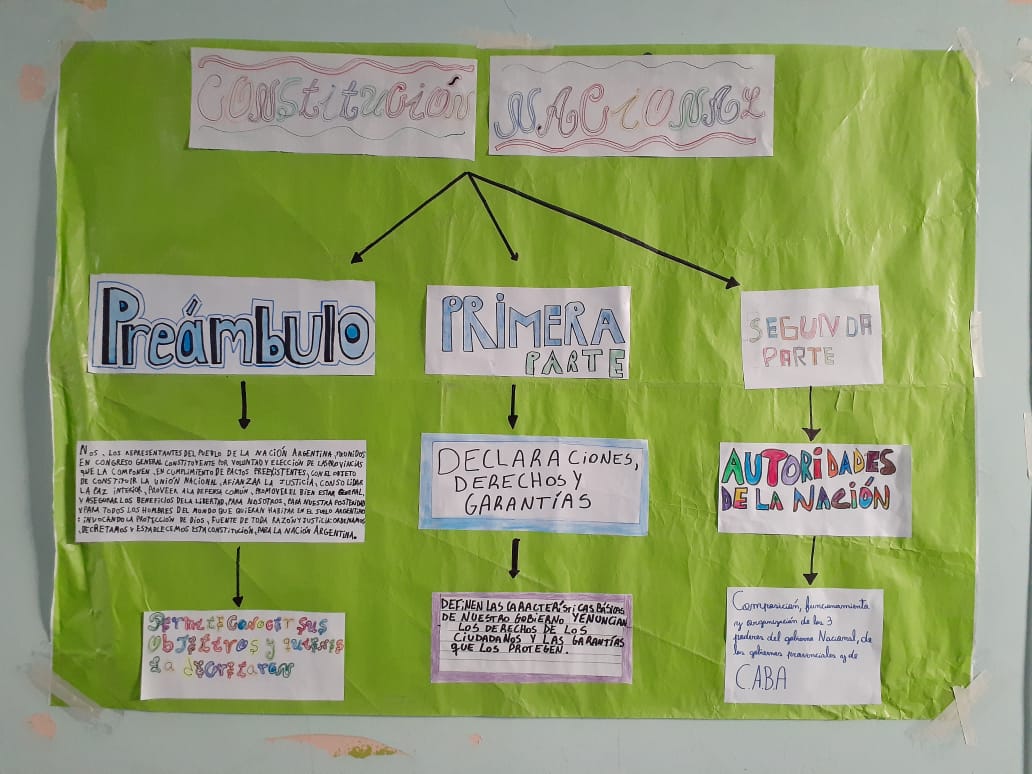 CONStitUCIÓN NACIONAL
Preámbulo
NOS, LOS REPRESENTANTES DEL PUEBLO DE LA NACIÓN ARGENTINA, REUNIDOS
EN CONGRESO GENERAL CONSTITUYENTE POR VOLUNTAD Y ELECCION DE LAS PROVINCIAS
QUE LA COMPONEN, EN CUMPLIMIENTO DE PACTOS PREEXISTENTES, CON EL OBJETO
DE CONSTITUIR LA UNIÓN NACIONAL, AFIANZAR LA JUSTICIA, CONSOLIDAR
LA PAZ INTERIOR, PROVEER A LA DEFENSA COMÚN, PROMOVER EL BIEN ESTAR GENERAL,
Y ASEGURAR LOS BENEFICIOS DE LA LIBERTAD, PARA NOSOTROS, PARA NUESTRA POSTERIDAD
Y PARA TODOS LOS HOMBRES DEL MUNDO QUE QUIERAN HABITAR EN EL SUELO ARGENTINO
: INVOCANDO LA PROTECCIÓN DE DIOS, FUENTE DE TODA RAZÓN Y JUSTICIA: ORDENAMOS,
DECRETAMOS Y ESTABLECEMOS ESTA CONSTITUCIÓN, PARA LA NACIÓN ARGENTINA.
Permite Conocer sus
Objetivos y quienes
la
PRIMERA
PARTE
DECLARACIONES,
DERECHOS Y
GARANTÍAS
DEFINEN LAS CARACTERÍSTICAS BÁSICAS
DE NUESTRO GOBIERNO Y ENUNCIAN
LOS DERECHOS DE LOS
CIUDADANOS Y LAS GARANTÍAS
QUE LOS PROTEGEN.
SEGUNDA
PARTE
AUTORIDADES
DE LA NACIÓN
Composición, funcionamiento
y organización de los 3
poderes del gobierno Nacional, de
los gobiernos provinciales y de
C.A.B.A